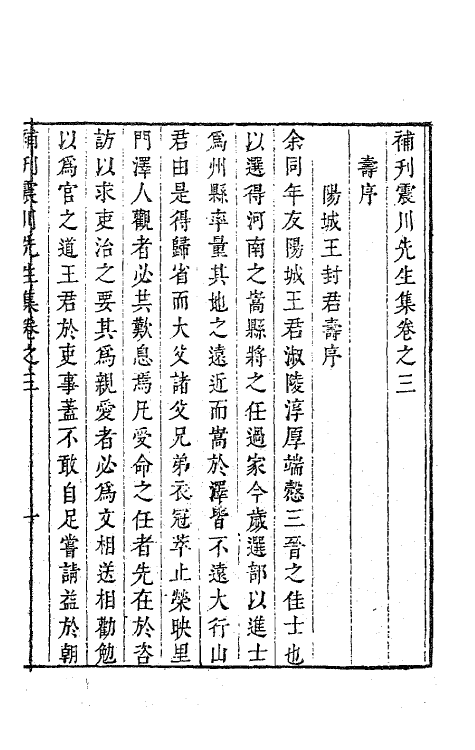 補刊震川先生集卷之三
壽序
陽城王封君壽序
余同年友陽城王君淑陵淳厚端慤三晉之佳士也
以選得河南之嵩縣將之任過家今歲選部以進士
爲州縣率量其地之遠近而嵩於澤皆不遠大行山
君由是得歸省而大父諸父兄弟衣冠萃止榮映里
門澤人觀者必共歎息焉凡受命之任者先在於咨
訪以求吏治之要其爲親愛者必爲文相送相勸勉
以爲官之道王君於吏事蓋不敢自足嘗請益於朝
補刊震川先生集卷之三
一